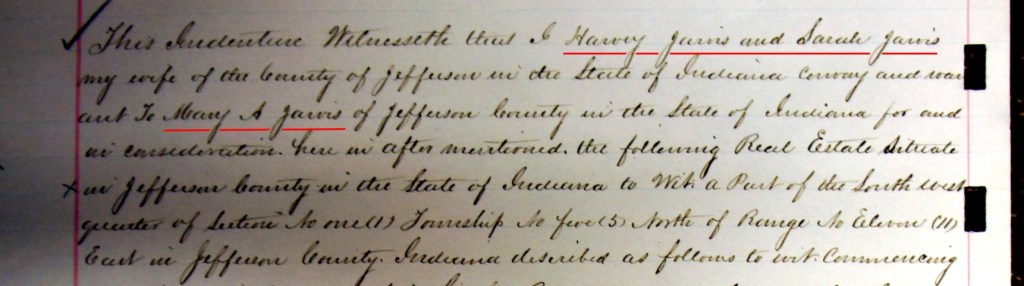 This Indenture Witnesseth that I Harvey Jarvis and Sarah Jarvis
my wife of the County of Jefferson in the State of Indiana convey and warr
ant To Mary A Jarvis of Jefferson County in the State of Indiana for and
in consideration. here in after mentioned. the following Real Estate situate
x in Jefferson County in the State of Indiana to Wit. a Part of the South west
quarter of Section No one (1) Township No five (5) North of Range No Eleven (11)
East in Jefferson County. Indiana described as follows to wit. Commencing